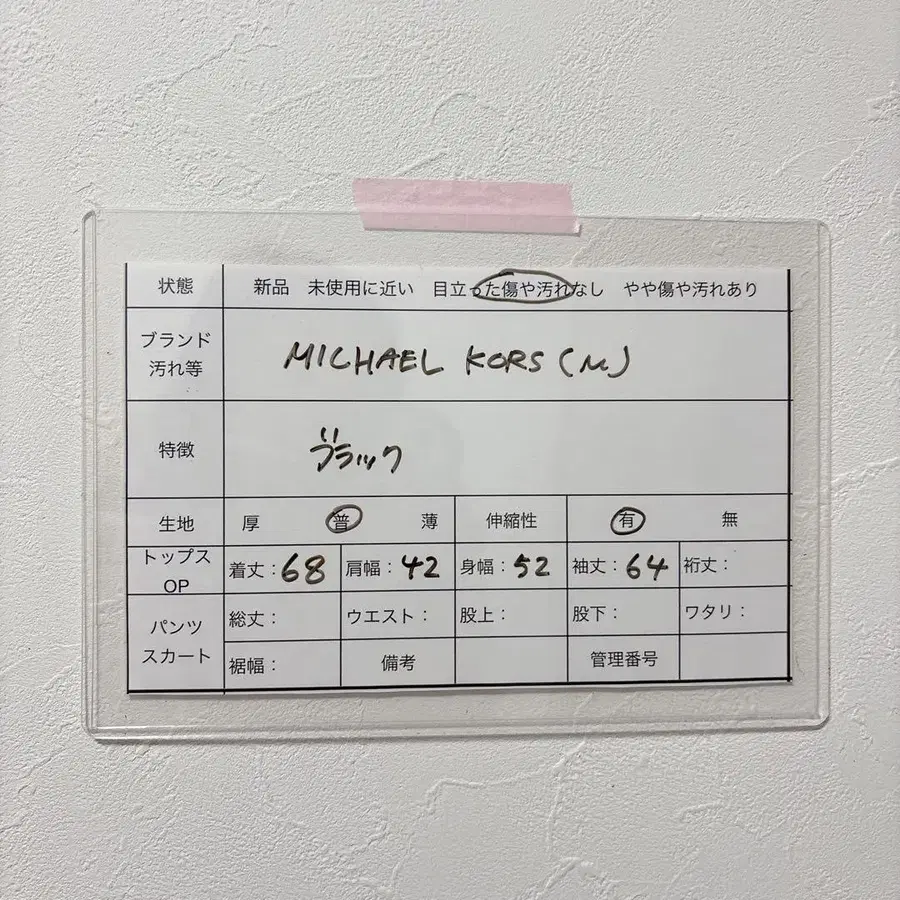 状態 新品 未使用に近い 目立った傷や汚れなし やや傷や汚れあり
ブランド
汚れ等
MICHAEL KORS (M)
特徴 ブラック
生地 厚 普 薄 伸縮性 有 無
トップス
OP
着丈：68 肩幅：42 身幅：52 袖丈：64 裄丈：
パンツ
スカート
総丈： ウエスト： 股上： 股下： ワタリ：
裾幅： 備考 管理番号